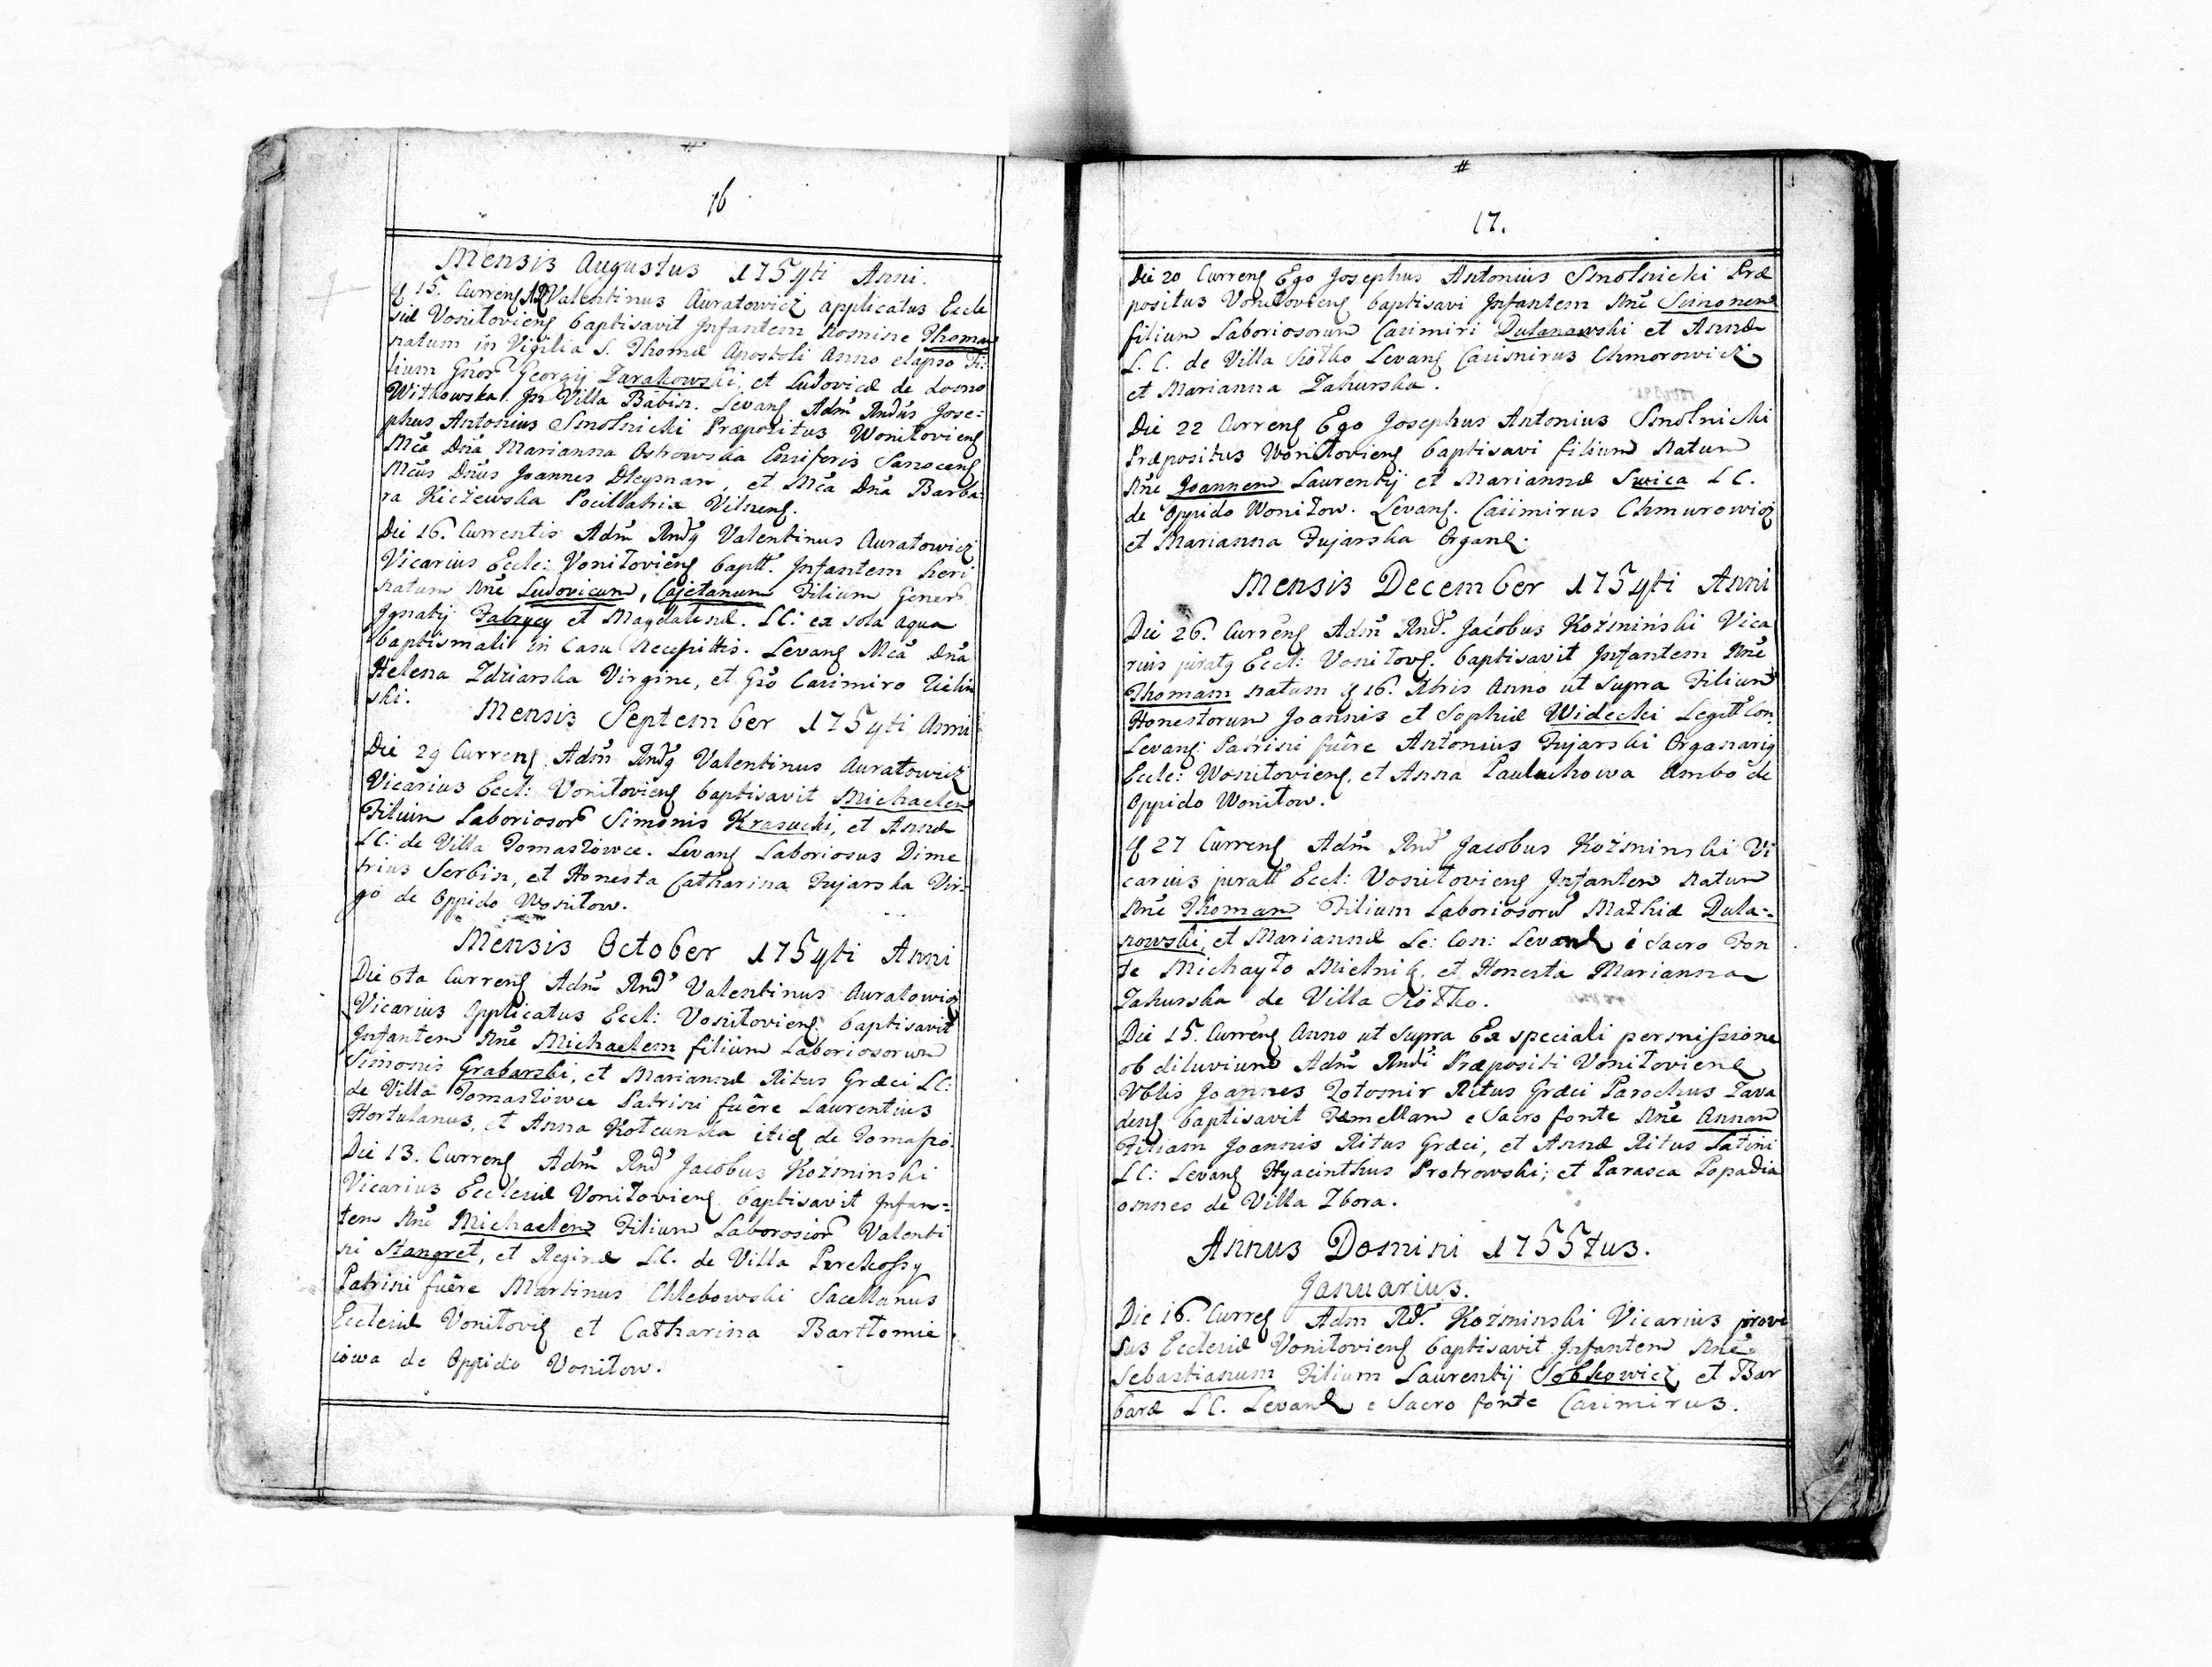 16
Mensis Augustus 1754ti Anni.
15. Curreng Valentinus Auratowicz applicatus Eccle
siæ Vonitovieng baptisavit Infantem Nomine Thomam
natum in Vigilia S. Thomæ Apostoli Anno elapso Fi:
lium Georgij Zarakowski, et Ludovicæ de domo
Witkowska. In Villa Babin. Levang Adm Rndus Jose=
phus Antonius Smolnicki Præpositus Wonitovieng
Mca Dna Marianna Ostrowska Ensiferis Sanoceng
Mcus Dnus Joannes, et Mca Dna Barba:
ra Kiczewska Pocillatrix Vilneng.
Die 16. Currentis Adm Rndg Valentinus Auratowicz
Vicarius Eccle: Vonitovieng baptt. Infantem heri
natum Nne Ludovicum, Cajetanum Filium Gener
Ignatij Fabrycy et Magdalenæ. LC: ex sola aqua
baptismali in Casu Levang Mca Dna
Helena Zdziarska Virgine, et Gso Casimiro Zielin
ski.
Mensis September 1754ti Anni
Die 29 Curreng Adm Rndg Valentinus Auratowicz
Vicarius Eccl: Vonitovieng baptisavit Michaelem
Filium Laboriosor Simonis Krasucki, et Annæ
LC: de Villa Tomaszowce. Levang Laboriosus Dime
trius Serbin, et Honesta Catharina Fujarska Vir=
go de Oppido Wonitow.
Mensis October 1754ti Anni
Die 6ta Curreng Adm Rnd Valentinus Auratowicz
Vicarius Applicatus Eccl: Vonitovieng baptisavit
Infantem Nne Michaelem filium Laboriosorum
Simonis Grabarski, et Mariannæ Ritus Græci LC:
de Villa Tomaszowce Patrini fuêre Laurentius
Hortulanus, et Anna de
Die 13. Curreng Adm Rnd Jacobus Kozminski
Vicarius Ecclesiæ Vonitovieng baptisavit Infan=
tem Nne Michaelem Filium Valenti
ni Stangret, et Reginæ LC. de Villa
Patrini fuêre Martinus Chlebowski Sacellanus
Ecclesiæ Vonitovig et Catharina Bartłomie
iowa de Oppido Vonitow.
17.
Die 20 Curreng Ego Josephus Antonius Smolnicki Præ
positus Vonitovieng baptisavi Infantem Nne Simonem
filium Laboriosorum Casimiri Dulanowski et Annæ
L. C. de Villa Siołko Levang Casimirus Chmorowicz
et Marianna Zahurska.
Die 22 Curreng Ego Josephus Antonius Smolnicki
Præpositus Wonitovieng baptisavi filium Natum
Nne Joannem Laurentij et Mariannæ Swica LC.
de Oppido Wonitow. Levang. Casimirus Chmurowicz
et Marianna Fujarska Organ.
Mensis December 1754ti Anni
Die 26. Curreng Adm Rnd. Jacobus Koźmiński Vica
rius juratg Eccl: Vonitovg. baptisavit Infantem Nne
Thomam natum 16. Xbris Anno ut supra Filium
Honestorum Joannis et Sophiæ Widecki Legitt Con.
Levang: Patrini fuêre Antonius Fujarski Organarig
Eccle: Wonitovieng. et Anna Pauluchowa Ambo de
Oppido Wonitow.
27 Curreng Adm Rnd Jacobus Kozminski Vi
carius juratt Eccl: Vonitovieng Infantem natum
Nne Thomam Filium Laboriosoru Mathiæ Dula=
nowski, et Mariannæ Le: Con: è Sacro Fon
te Michayło Mielnik. et Honesta Marianna
Zahurska de Villa Siołko.
Die 15. Curreng Anno ut supra Ex speciali permissione
ob diluvium Adm Rndi Præpositi Vonitovieng
Vblis Joannes Zotomir Ritus Græci Parochus Zava
deng baptisavit Femellam e Sacro fonte Nne Annam
Filiam Joannis Ritus Græci, et Annæ Ritus Latini
LC: Levang Hyacinthus Protrowski; et Parasca Popadia
omnes de Villa Zbora.
Annus Domini 1755tus.
Januarius.
Die 16. Curreg Adm Rd. Kozminski Vicarius provi
sus Ecclesiæ Vonitovieng baptisavit Infantem Nne
Sebastianum Filium Laurentij Sobkowicz et Bar
baræ LC. e Sacro fonte Casimirus.